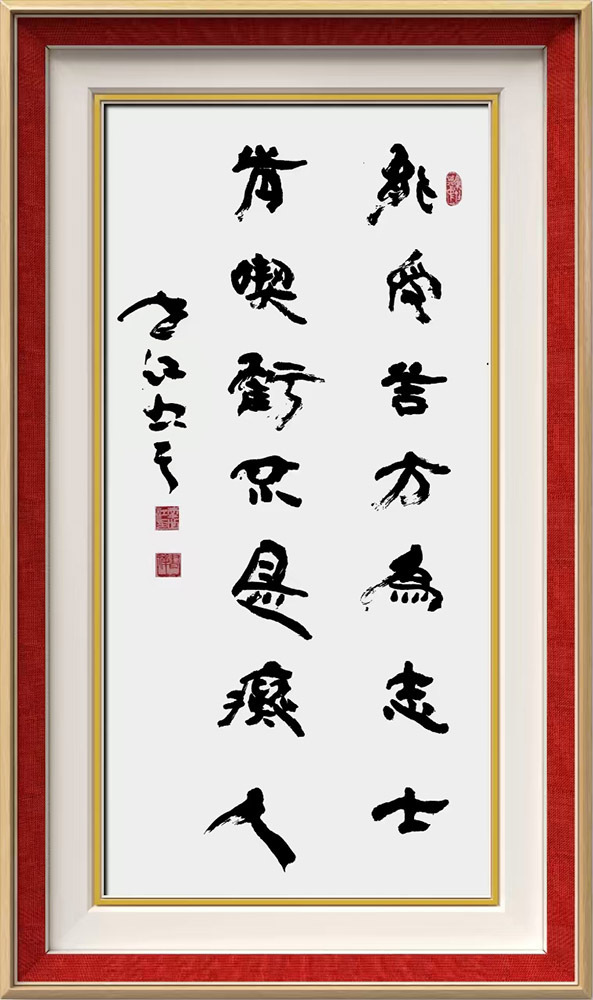 能受苦方為志士
肯喫虧不是癡人